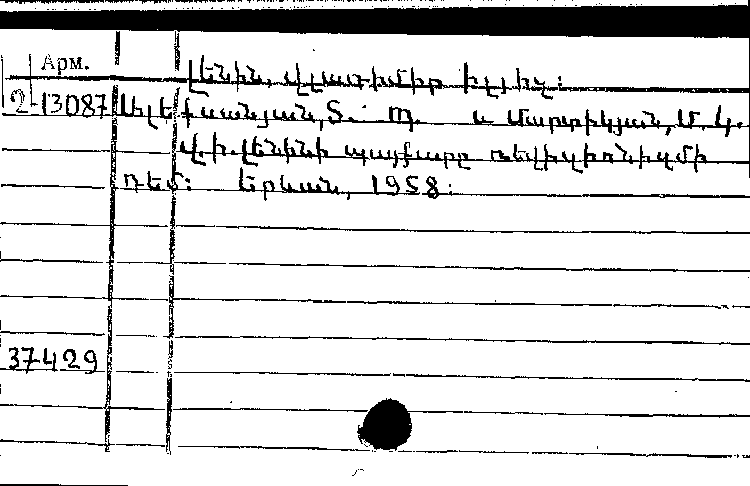 Арм.
Լենին, Վլադիմիր Իլյիչ:
2-13087 Ալեքսանյան, Տ. Պ. և Մարտիկյան, Մ. Կ.
Վ. Ի. Լենինի պայքարը ռևիզիոնիզմի
դեմ: Երևան, 1958:
37429